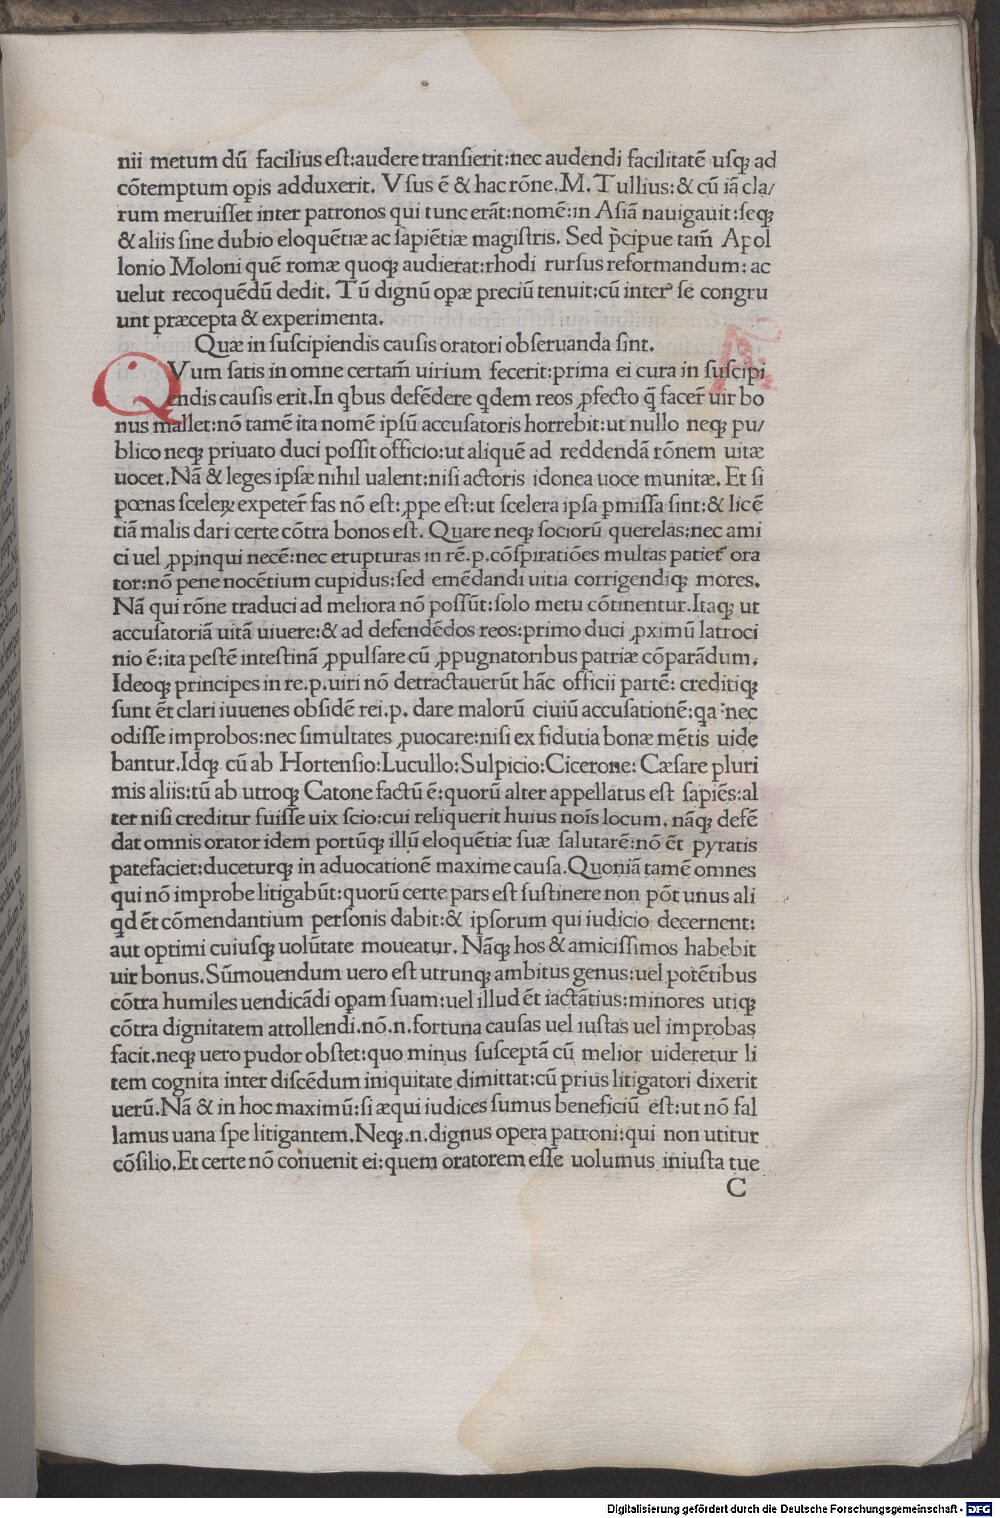 nii metum dū facilius est:audere transierit:nec audendi facilitatē usq; ad
cōtemptum opis adduxerit. Vsus ē & hac rōne.M.Tullius:& cū iā cla/
rum meruisset inter patronos qui tunc erāt:nomē:in Asiā nauigauit:seq;
& aliis sine dubio eloquētiæ ac sapiētiæ magistris. Sed p̄cipue tam̄ Apol
lonio Moloni quē romæ quoq; audierat:rhodi rursus reformandum: ac
uelut recoquēdū dedit. Tū dignū opæ preciū tenuit:cū inter˒ se congru
unt præcepta & experimenta.
Quæ in suscipiendis causis oratori obseruanda sint.
QVum satis in omne certam̄ uirium fecerit:prima ei cura in suscipi
endis causis erit.In qbus defēdere qdem reos ꝓfecto q̄ facer̄ uir bo
nus mallet:nō tamē ita nomē ipsū accusatoris horrebit:ut nullo neq; pu/
blico neq; priuato duci possit officio:ut aliquē ad reddendā rōnem uitæ
uocet.Nā & leges ipsæ nihil ualent:nisi actoris idonea uoce munitæ. Et si
pœnas sceleꝝ expeter̄ fas nō est:ꝓpe est:ut scelera ipsa pmissa sint:& licē
tiā malis dari certe cōtra bonos est. Quare neq; sociorū querelas:nec ami
ci uel ꝓpinqui necē:nec erupturas in rē.p.cōspiratiōes multas patiet˒ ora
tor:nō pene nocētium cupidus:sed emēdandi uitia corrigendiq; mores.
Nā qui rōne traduci ad meliora nō possūt:solo metu cōtinentur.Itaq; ut
accusatoriā uitā uiuere:& ad defendēdos reos:primo duci ꝓximū latroci
nio ē:ita pestē intestinā ꝓpulsare cū ꝓpugnatoribus patriæ cōparādum.
Ideoq; principes in re.p.uiri nō detractauerūt hāc officii partē: creditiq;
sunt ēt clari iuuenes obsidē rei.p. dare malorū ciuiū accusationē:qa nec
odisse improbos:nec simultates ꝓuocare:nisi ex fidutia bonæ mētis uide
bantur.Idq; cū ab Hortensio:Lucullo:Sulpicio:Cicerone: Cæsare pluri
mis aliis:tū ab utroq; Catone factū ē:quorū alter appellatus est sapiēs:al
ter nisi creditur fuisse uix scio:cui reliquerit huius nois locum. nāq; defē
dat omnis orator idem portūq; illū eloquētiæ suæ salutarē:nō ēt pyratis
patefaciet:duceturq; in aduocationē maxime causa.Quoniā tamē omnes
qui nō improbe litigabūt:quorū certe pars est sustinere non pōt unus ali
qd ēt cōmendantium personis dabit:& ipsorum qui iudicio decernent:
aut optimi cuiusq; uolūtate moueatur. Nāq; hos & amicissimos habebit
uir bonus.Sūmouendum uero est utrunq; ambitus genus:uel potētibus
cōtra humiles uendicādi opam suam:uel illud ēt iactātius:minores utiq;
cōtra dignitatem attollendi.nō.n.fortuna causas uel iustas uel improbas
facit.neq; uero pudor obstet:quo minus susceptā cū melior uideretur li
tem cognita inter discēdum iniquitate dimittat:cū prius litigatori dixerit
uerū.Nā & in hoc maximū:si æqui iudices sumus beneficiū est:ut nō fal
lamus uana spe litigantem.Neq;.n.dignus opera patroni:qui non utitur
cōsilio.Et certe nō conuenit ei:quem oratorem esse uolumus iniusta tue
C
Digitalisierung gefördert durch die Deutsche Forschungsgemeinschaft - DFG